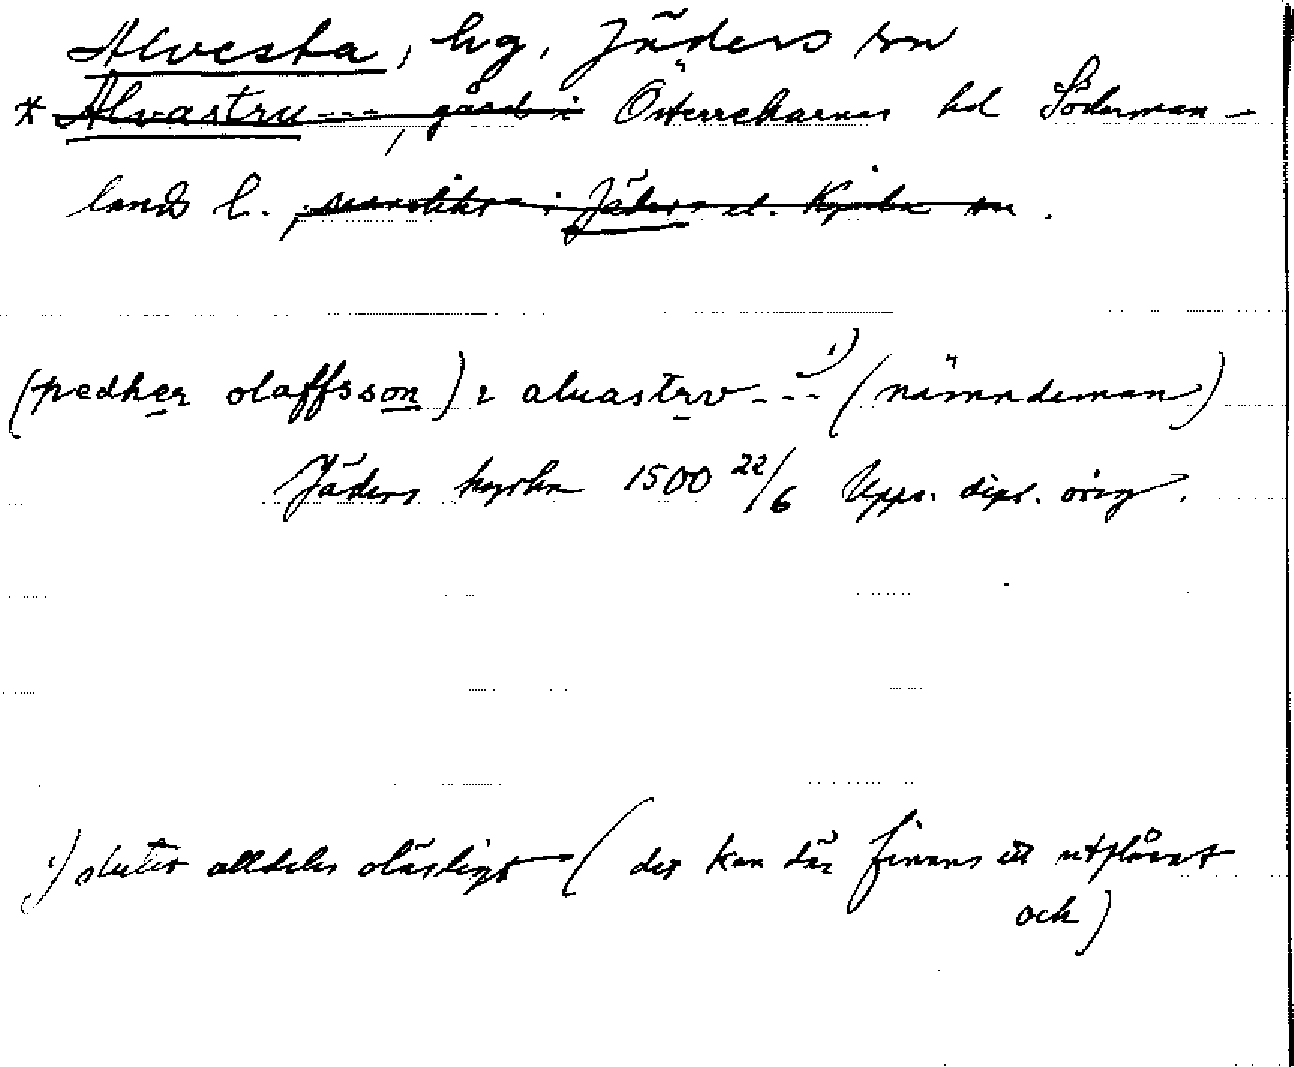 Alvesta, hg, Jäders sn
* Alvastru---, gård i Österrekarnes hd Söderman-
lands l., i Jäders el. Kjula sn.
(pedher olaffsson) i aluastrv --- 1) (nämndeman)
Jäders kyrka 1500 22/6 Upps. dipl. orig.
1) slutet alldeles oläsligt (det kan där finnas ett utplånat
och)